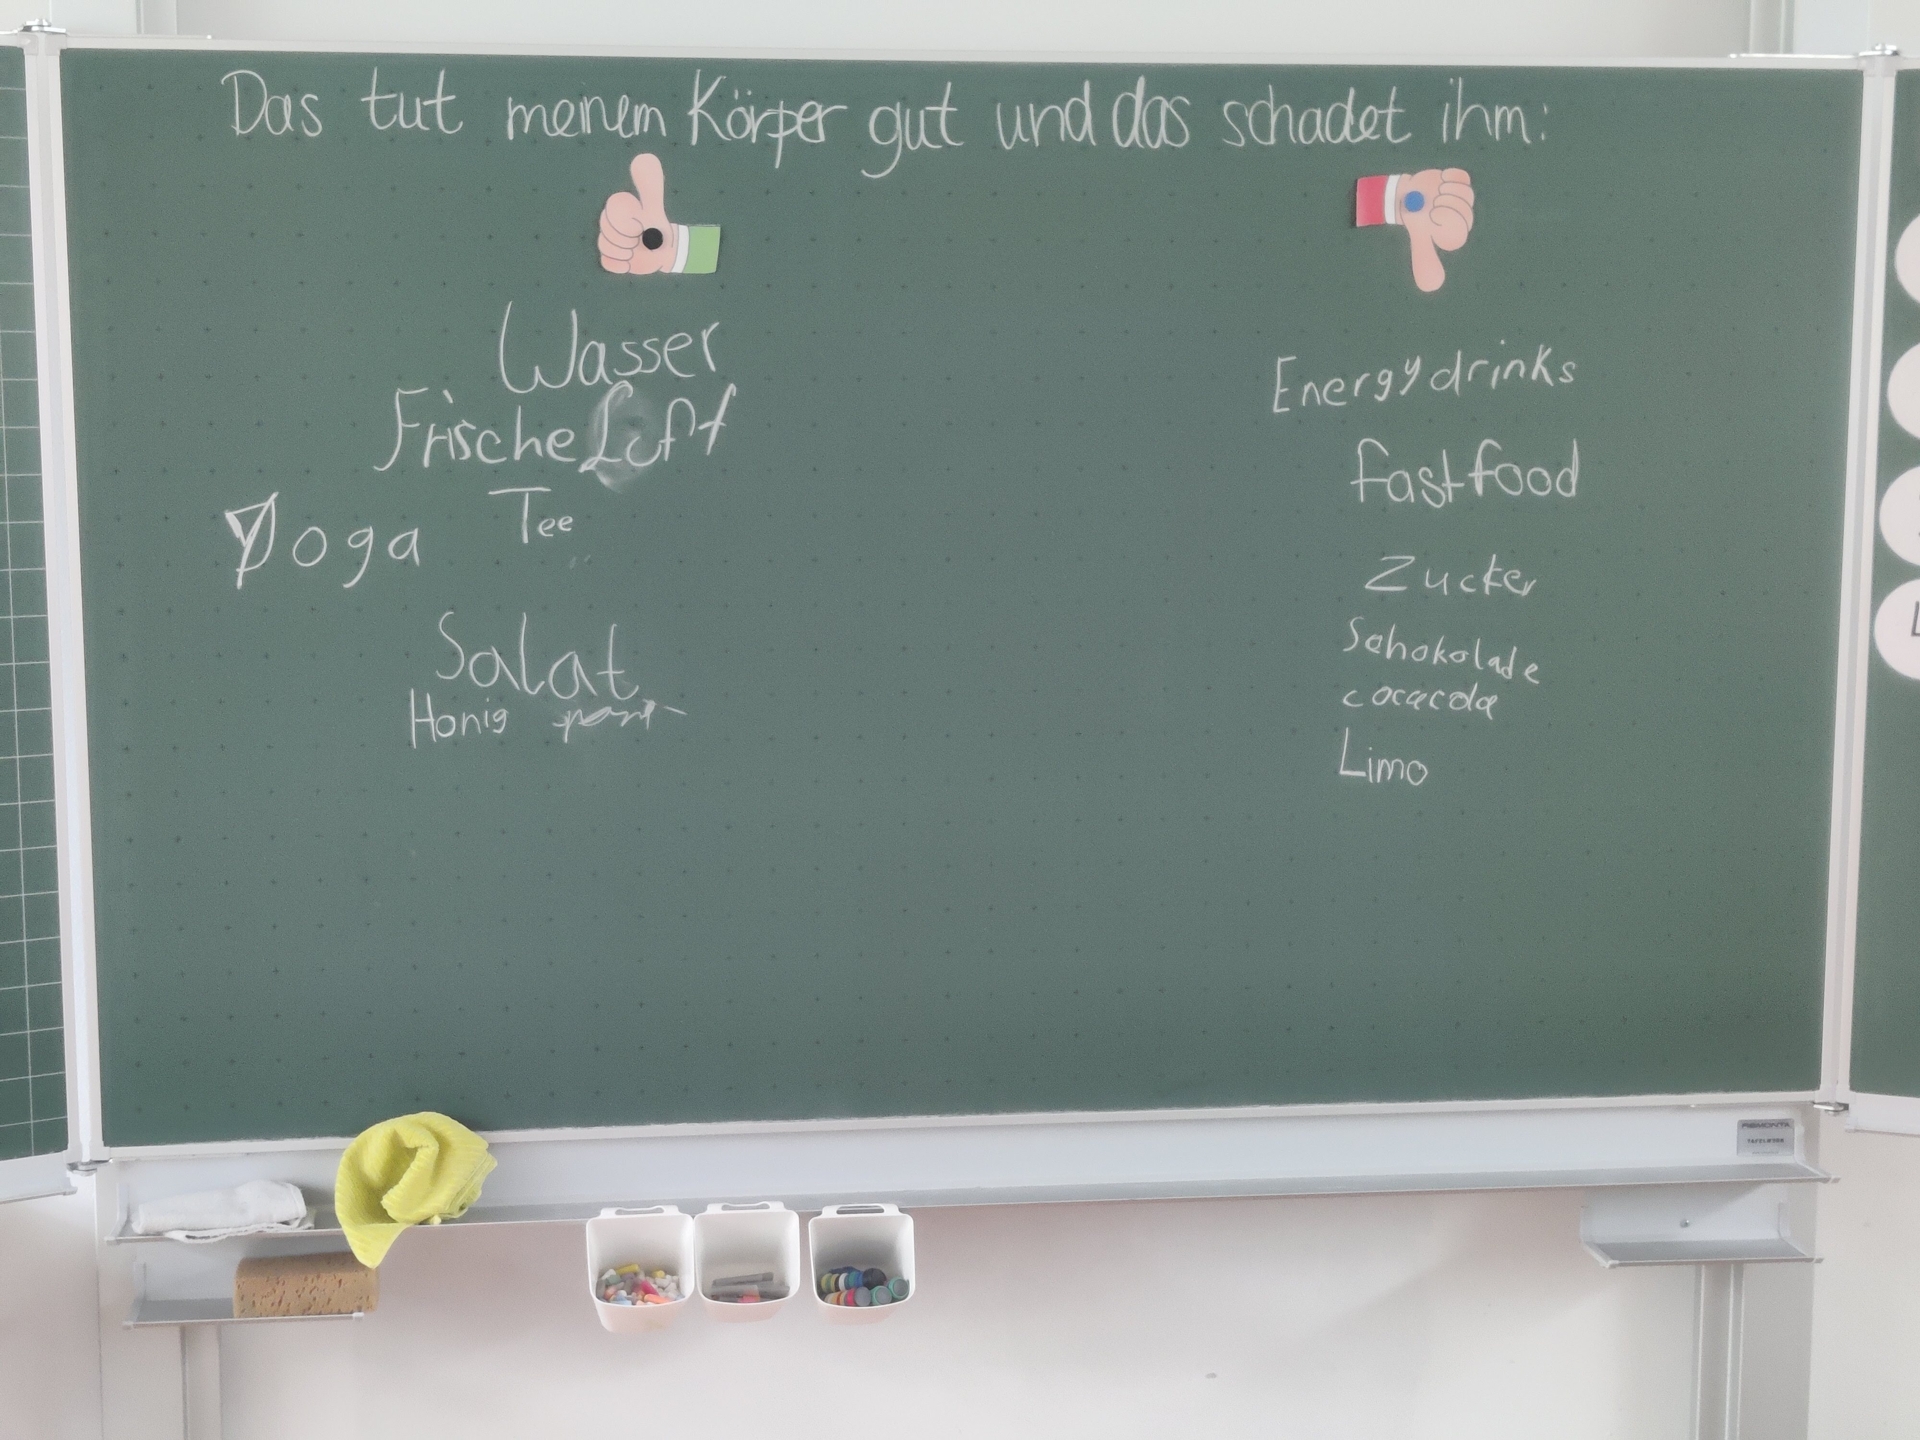 Das tut meinem Körper gut und das schadet ihm:
Wasser
Frische Luft
Tee
Yoga
Salat
Honig
Energydrinks
fastfood
Zucker
Schokolade
cocacola
Limo
REMONTA